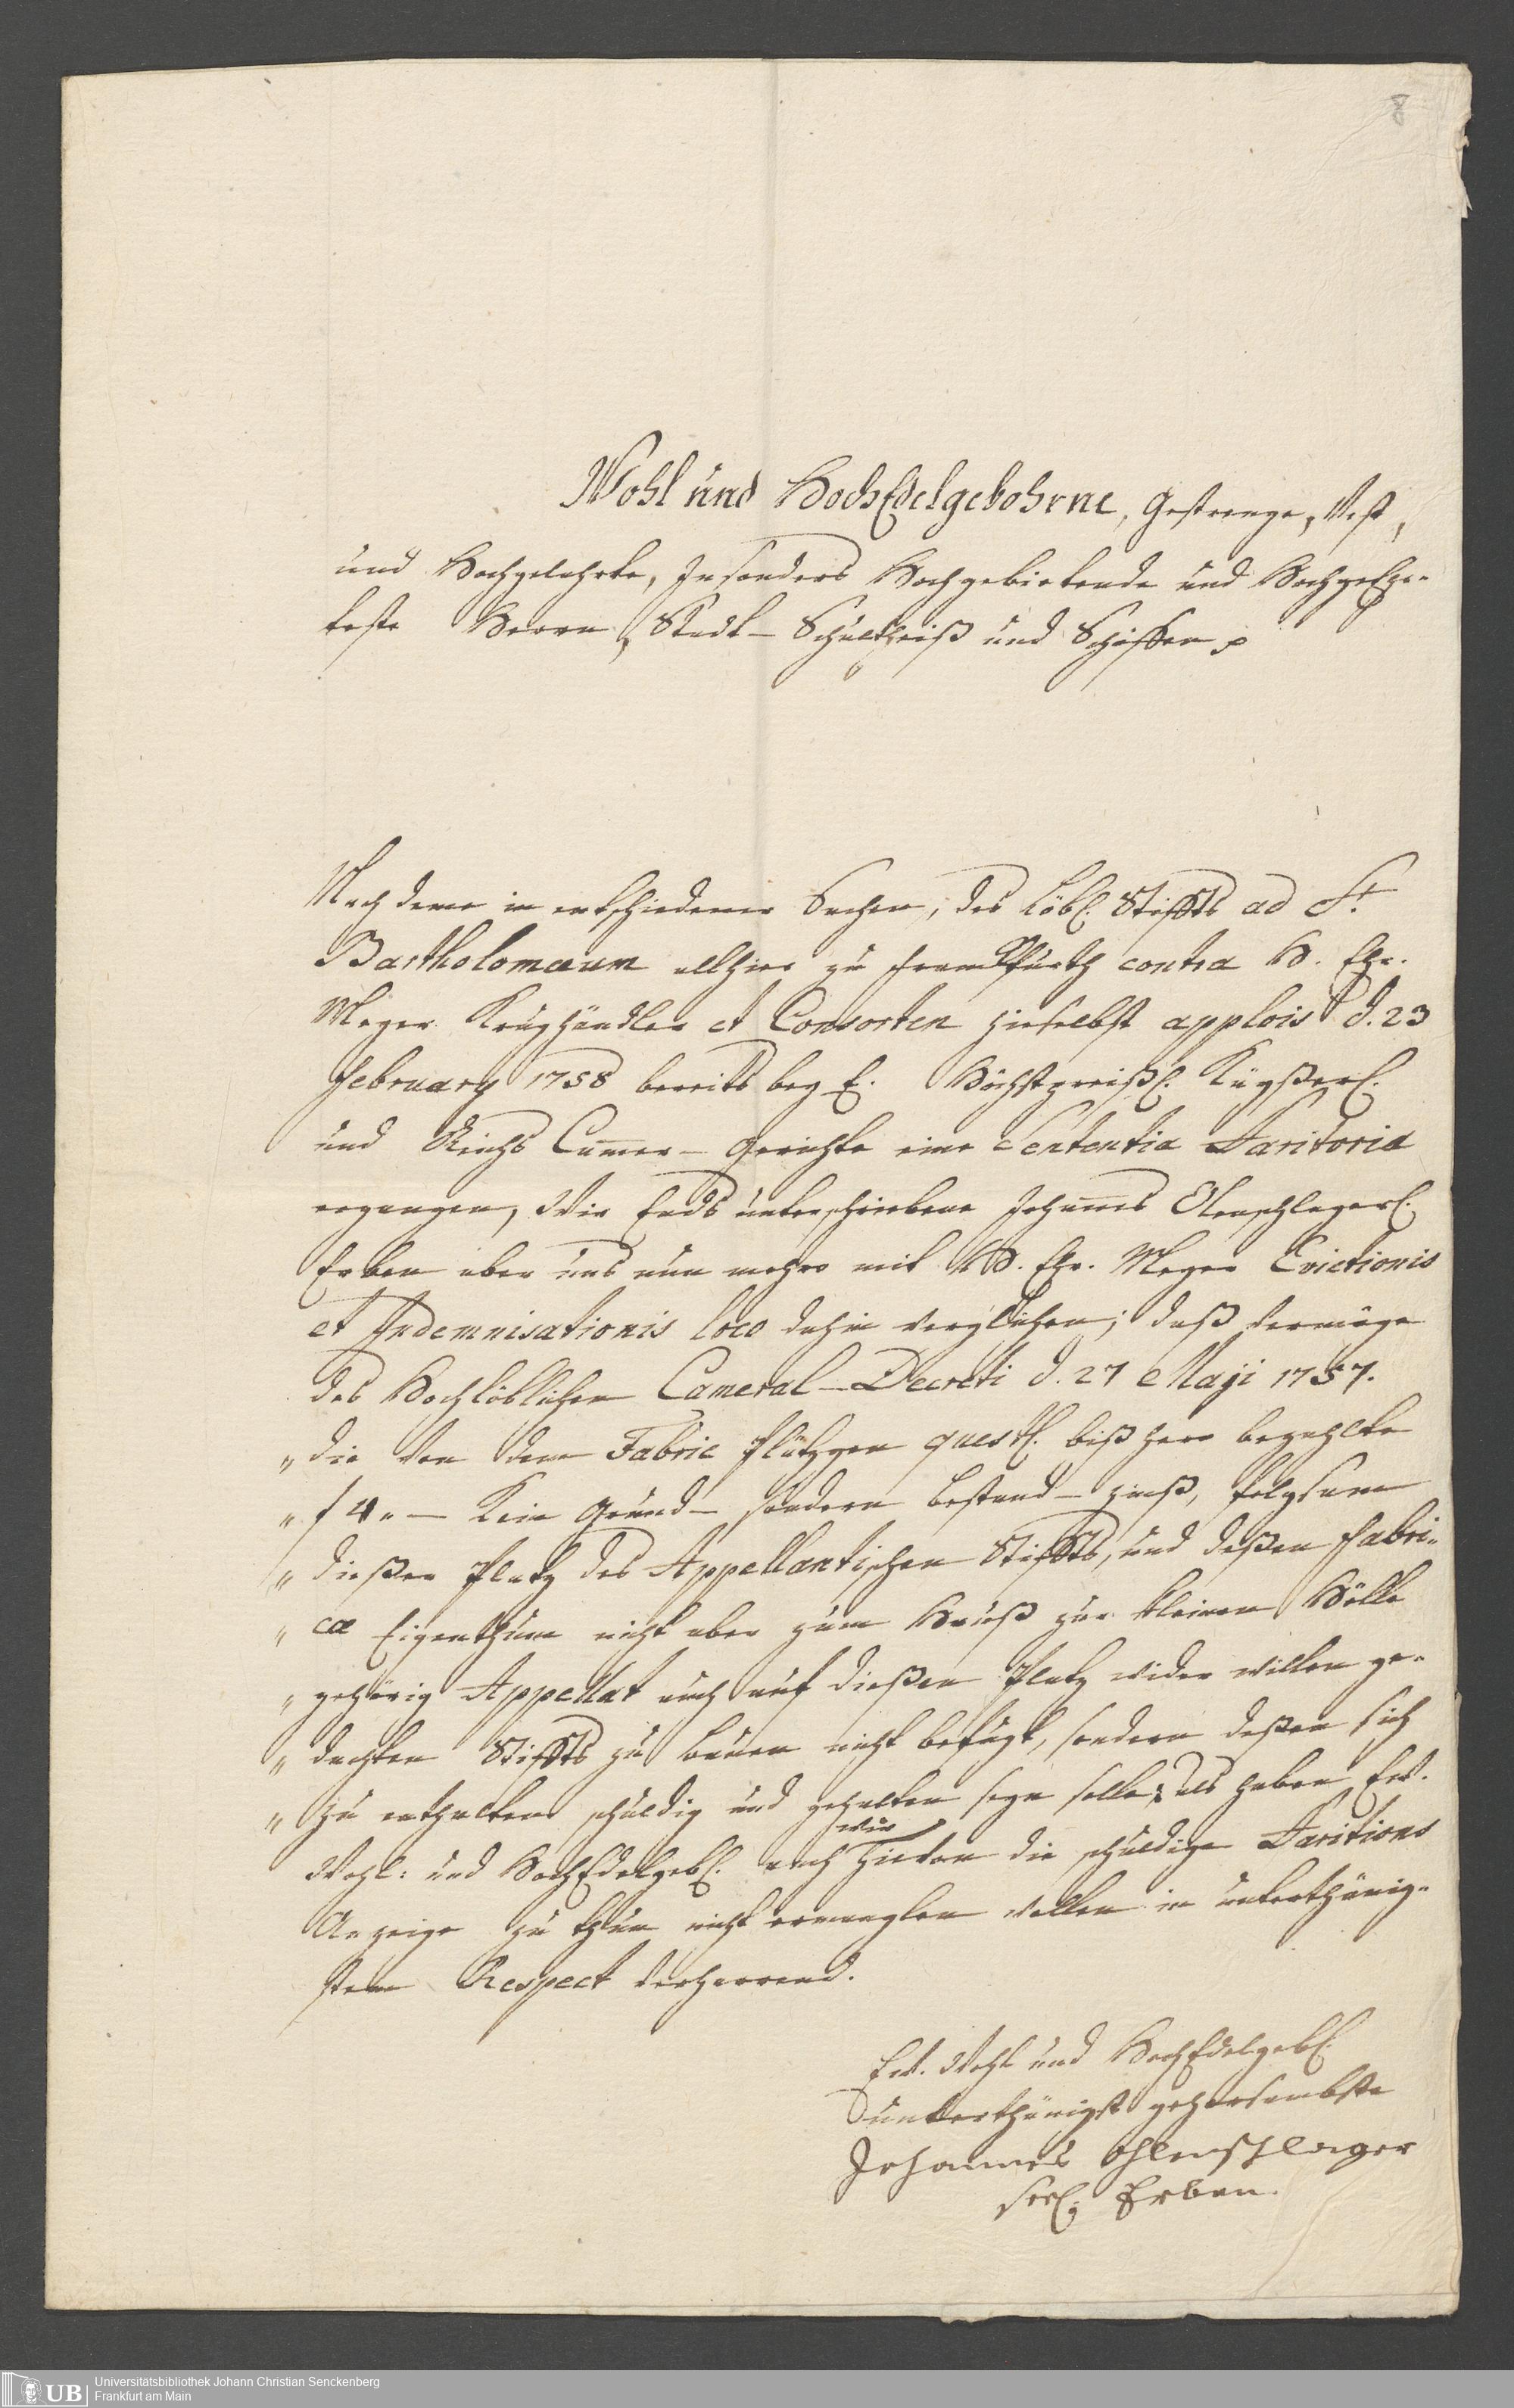 8
Wohl und HochEdelgebohrne, Gestrenge, Vest,
und Hochgelahrte, Insonders Hochgebietende und HochgeEhr-
teste Herrn Stadt-Schultheiß und Schöffen p
Nach deme in entschiedener Sachen, des Löbl. Stiffts ad St.
Bartholomæum allhier zu Franckfurth contra H. Chr.
Meyer Krughändler et Consorten hieselbst d. 23
February 1758 bereits bey E. Höchstpreißl. Kayßerl.
und Reichs Cammer-Gerichte eine Sententia Paritoria
ergangen, Wir Ends unterschriebene Johannes Olenschlagerl.
Erben aber uns nun mehro mit H. Chr. Meyer Evictionis
et Indemnisationis loco dahin verglichen; daß vermöge
des Hochlöblichen Cameral-Decreti d. 27 Maji 1757.
" die von dem Fabric Plätzgen quæstl. bißhero bezahlte
" f 4 " — Kein Grund- sondern Bestand-zinß, folgsam
" dießer Platz des Appellantischen Stiffts, und deßen Fabri-
" cæ Eigenthum nicht aber zum Hauß zur kleinen Hölle
" gehörig Appellat auch auf dießen Platz wider willen ge-
" dachten Stiffts zu bauen nicht befugt, sondern deßen sich
" zu enthalten schuldig und gehalten seyn solle; als haben Ew.
wir
Wohl: und HochEdelgebl. auch hievon die schuldige Paritions
Anzeige zu thun nicht ermanglen wollen in unterthänig-
stem Respect verharrend.
Ew. Wohl und HochEdelgebl.
unterthänigst gehorsambste
Johannes Ohlenschlager
seel. Erben.
UB
Universitätsbibliothek Johann Christian Senckenberg
Frankfurt am Main